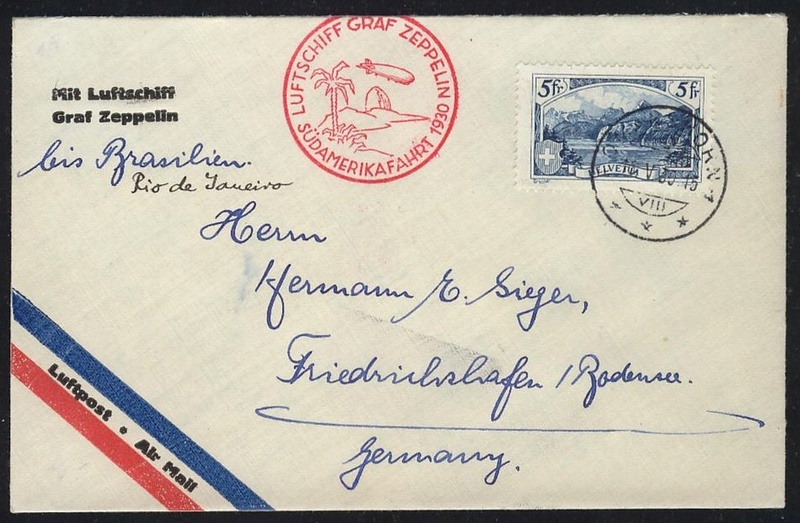 Mit Luftschiff
Graf Zeppelin
bis Brasilien.
Rio de Janeiro
LUFTSCHIFF GRAF ZEPPELIN
SÜDAMERIKAFAHRT 1930
5fr.
5fr.
HELVETIA
V
VIII
Herrn
Hermann E. Sieger,
Friedrichshafen / Bodensee.
Germany.
Luftpost • Air Mail